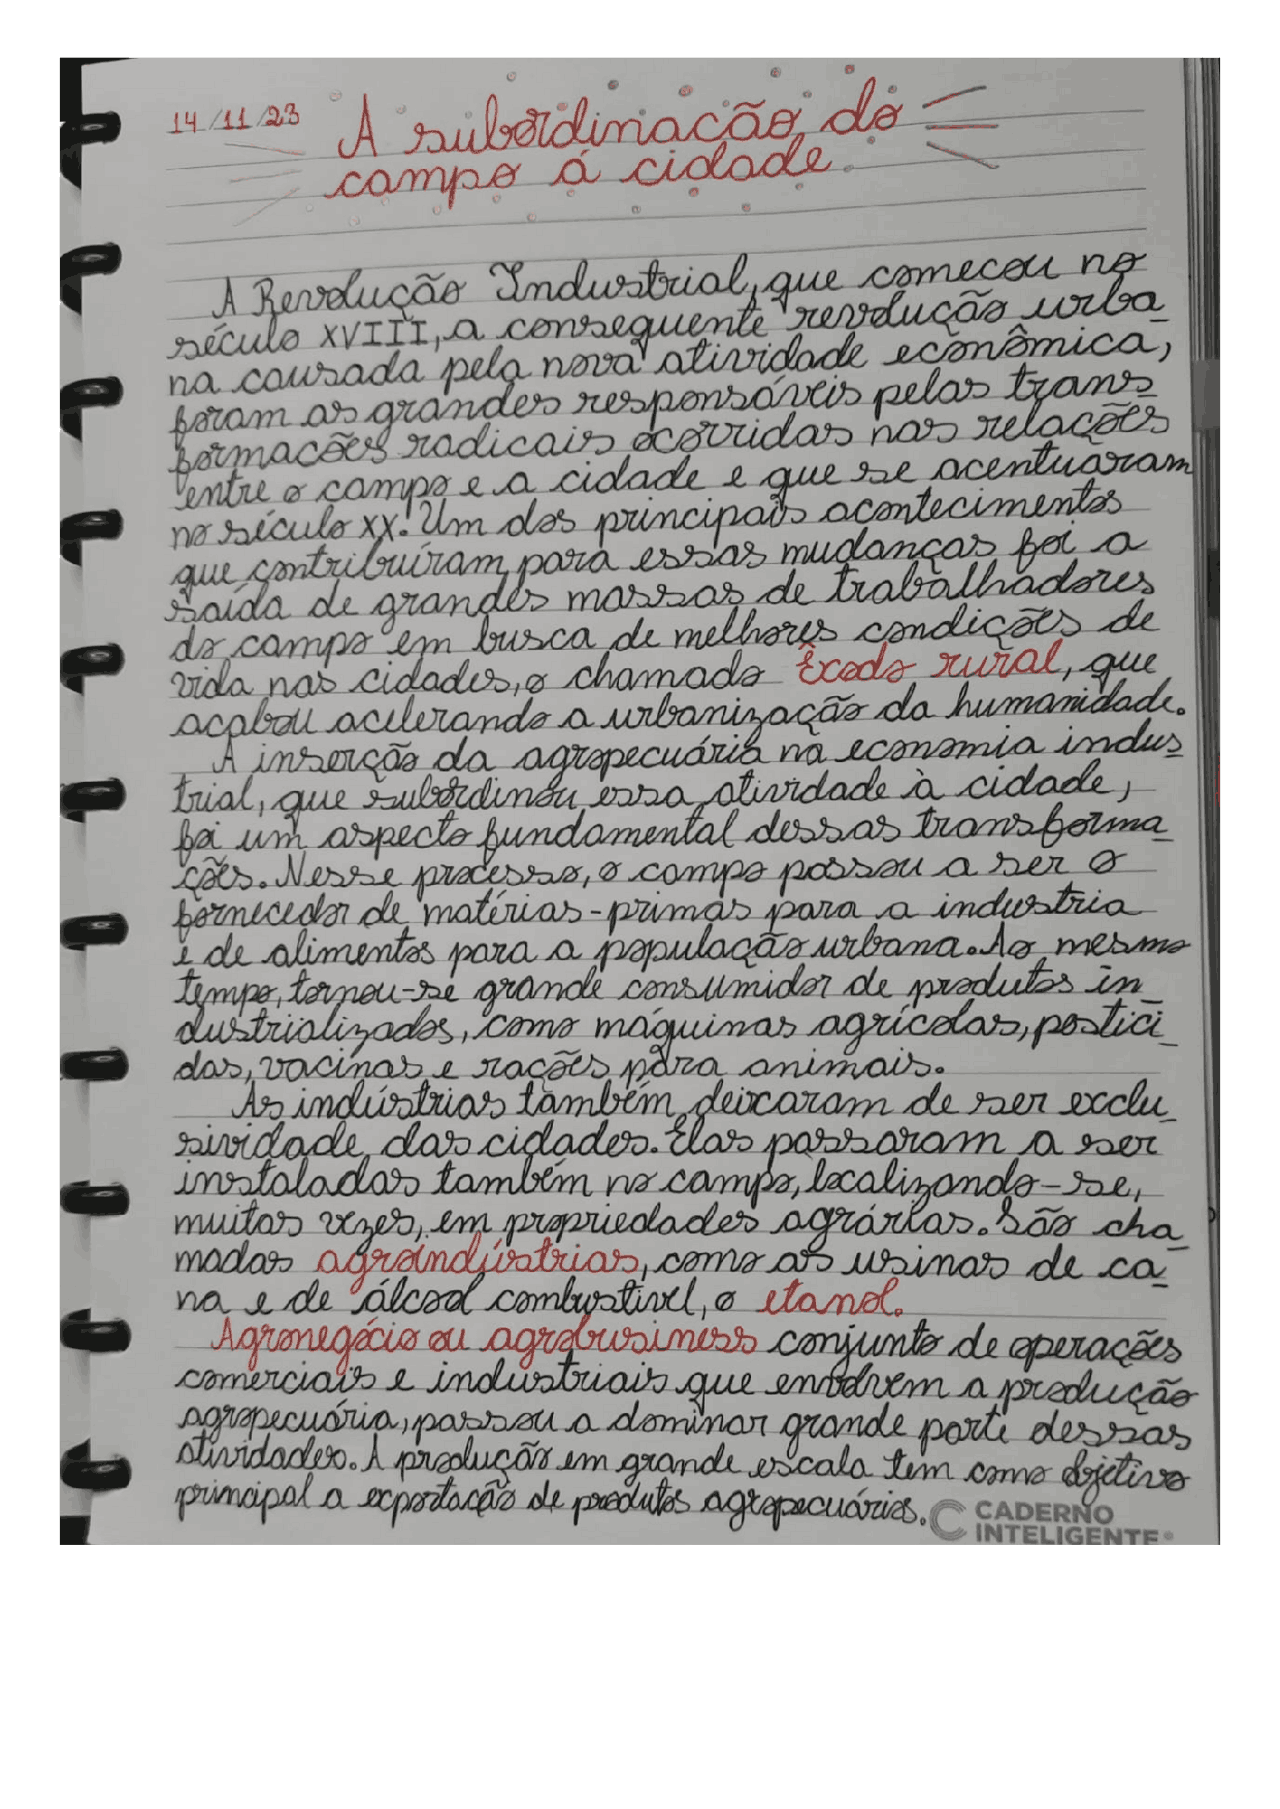 14/11/23
A subordinacão do
campo á cidade
A Revolução Industrial, que comecou no
século XVIII, a consequente revolução urba
na causada pela nova atividade econômica,
foram as grandes responsáveis pelas trans
formacões radicais ocorridas nas relações
entre o campo e a cidade e que se acentuaram
no século XX. Um dos principais acontecimentos
que contribuíram para essas mudanças foi a
saída de grandes massas de trabalhadores
do campo em busca de melhores condições de
vida nas cidades, o chamado Êxodo rural, que
acabou acelerando a urbanização da humanidade.
A inserção da agropecuária na economia indus
trial, que subordinou essa atividade à cidade,
foi um aspecto fundamental dessas transforma
ções. Nesse processo, o campo passou a ser o
fornecedor de matérias-primas para a industria
e de alimentos para a população urbana. Ao mesmo
tempo, tornou-se grande consumidor de produtos in
dustrializados, como máquinas agrícolas, postici
das, vacinas e rações para animais.
As indústrias também deixaram de ser exclu
sividade das cidades. Elas passaram a ser
instaladas também no campo, localizando-se,
muitas vezes, em propriedades agrárias. São cha
madas agroindústrias, como as usinas de ca
na e de álcool combustivel, o etanol.
Agronegócio ou agrobusiness conjunto de operações
comerciais e industriais que envolvem a produção
agropecuária, passou a dominar grande parte dessas
atividades. A produção em grande escala tem como objetivo
principal a exportação de produtos agropecuários.
CADERNO
INTELIGENTE